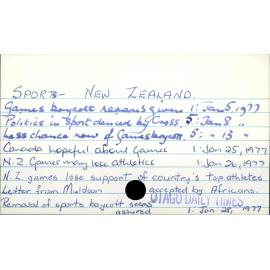 SPORTS - NEW ZEALAND.
Games boycott reasons given 1: Jan 5, 1977
Politics in sport denied by Cross. 5: Jan 8 "
Less chance now of Games boycott. 5: " 13 "
Canada hopeful about Games 1: Jan 25, 1977
N.Z. Games may lose athletics 1: Jan 26, 1977
N.Z. games lose support of country's top athletes
Letter from Muldoon accepted by Africans.
OTAGO DAILY TIMES
Removal of sports boycott seems
assured 1: Jan 28, 1977